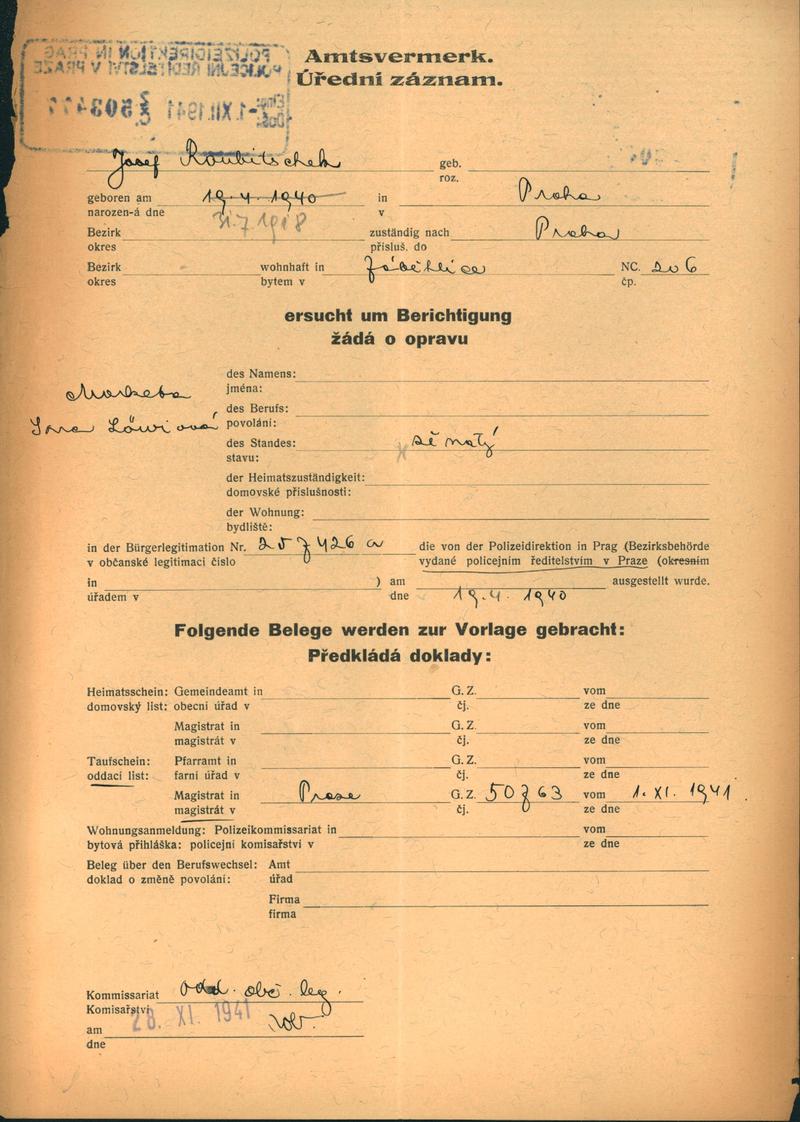 POLIZEIDIREKTION IN PRAG
POLICEJNÍ ŘEDITELSTVÍ V PRAZE
-1.XII.1941
Amtsvermerk.
Úřední záznam.
Josef Roubitschek geb.
roz.
geboren am 19.4.1940 in Praha
narozen-á dne 31.7.1918 v
Bezirk zuständig nach Praha
okres přísluš. do
Bezirk wohnhaft in Záběhlice NC. 206
okres bytem v čp.
ersucht um Berichtigung
žádá o opravu
des Namens:
Markéta jména:
des Berufs:
Löwiová povolání:
des Standes: ženatý
stavu:
der Heimatszuständigkeit:
domovské příslušnosti:
der Wohnung:
bydliště:
in der Bürgerlegitimation Nr. 257426 a die von der Polizeidirektion in Prag (Bezirksbehörde
v občanské legitimaci číslo vydané policejním ředitelstvím v Praze (okresním
in ) am ausgestellt wurde.
úřadem v dne 19.4.1940
Folgende Belege werden zur Vorlage gebracht:
Předkládá doklady:
Heimatsschein: Gemeindeamt in G.Z. vom
domovský list: obecní úřad v čj. ze dne
Magistrat in G.Z. vom
magistrát v čj. ze dne
Taufschein: Pfarramt in G.Z. vom
oddací list: farní úřad v čj. ze dne
Magistrat in Praze G.Z. 50763 vom 1. XI. 1941.
magistrát v čj. ze dne
Wohnungsanmeldung: Polizeikommissariat in vom
bytová přihláška: policejní komisařství v ze dne
Beleg über den Berufswechsel: Amt
doklad o změně povolání: úřad
Firma
firma
Kommissariat Odd. obč. leg.
Komisařství
am 28. XI. 1941
dne